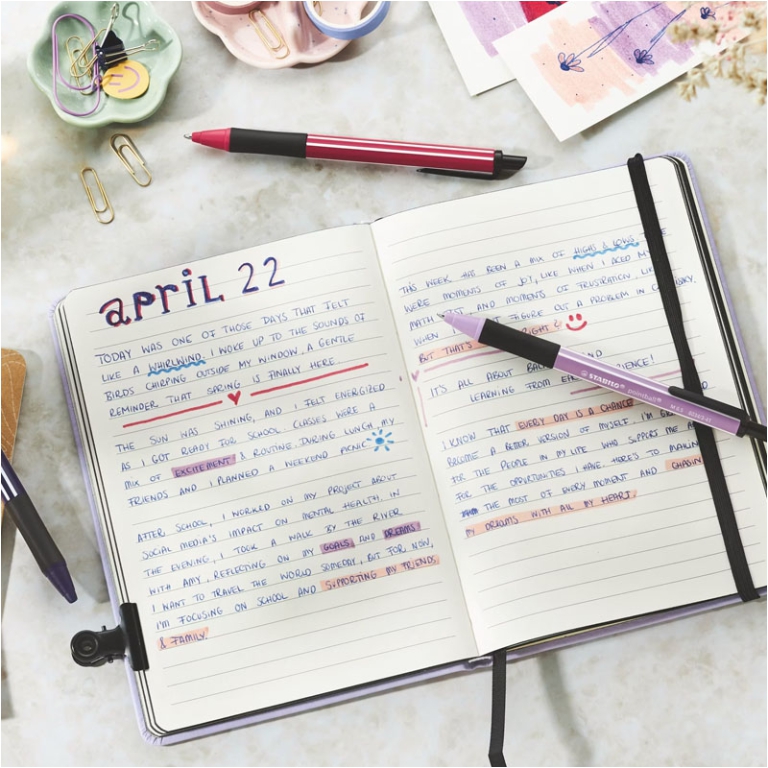 APRIL 22
TODAY WAS ONE OF THOSE DAYS THAT FELT
LIKE A WHIRLWIND. I WOKE UP TO THE SOUNDS OF
BIRDS CHIRPING OUTSIDE MY WINDOW, A GENTLE
REMINDER THAT SPRING IS FINALLY HERE.
THE SUN WAS SHINING, AND I FELT ENERGIZED
AS I GOT READY FOR SCHOOL. CLASSES WERE A
MIX OF EXCITEMENT & ROUTINE. DURING LUNCH, MY
FRIENDS AND I PLANNED A WEEKEND PICNIC
AFTER SCHOOL, I WORKED ON MY PROJECT ABOUT
SOCIAL MEDIA'S IMPACT ON MENTAL HEALTH. IN
THE EVENING, I TOOK A WALK BY THE RIVER
WITH AMY, REFLECTING ON MY GOALS AND DREAMS.
I WANT TO TRAVEL THE WORLD SOMEDAY, BUT FOR NOW,
I'M FOCUSING ON SCHOOL AND SUPPORTING MY FRIENDS
& FAMILY.
THIS WEEK HAS BEEN A MIX OF HIGHS & LOWS.
WERE MOMENTS OF JOY, LIKE WHEN I ACED MY
MATH AND MOMENTS OF FRUSTRATION, LIKE
WHEN FIGURE OUT A PROBLEM IN
BUT THAT'S RIGHT?
IT'S ALL ABOUT AND
LEARNING FROM
I KNOW THAT EVERY DAY IS A CHANCE
BECOME A BETTER VERSION OF MYSELF. I'M
FOR THE PEOPLE IN MY LIFE WHO SUPPORT ME
FOR THE OPPORTUNITIES I HAVE. HERE'S TO MAKING
THE MOST OF EVERY MOMENT AND CHASIN
MY DREAMS WITH ALL MY HEART.
STABILO pointball